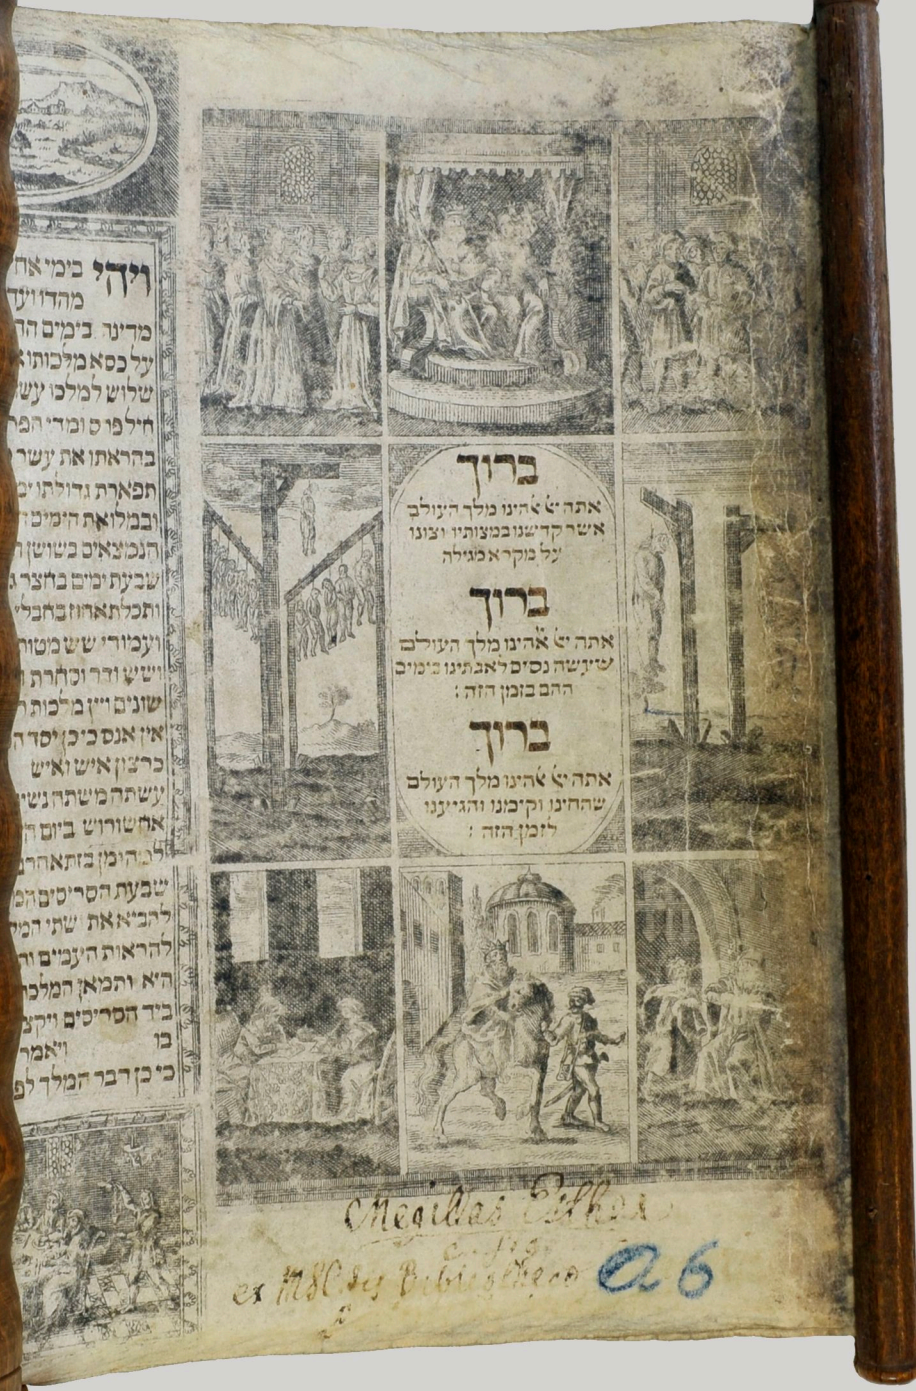 ברוך
אתה יי אלהינו מלך העולם
אשר קדשנו במצותיו וצונו
על מקרא מגילה
ברוך
אתה יי אלהינו מלך העולם
שעשה נסים לאבתינו בימים
ההם בזמן הזה :
ברוך
אתה יי אלהינו מלך העולם
שהחינו וקימנו והגיענו
לזמן הזה :
ויהי בימי אח
מהדו ועד
מדינה בימים הה
על כסא מלכותו א
שלוש למלכו עש
חיל פרס ומדי הפר
בהראתו את עשר
תפארת גדולתו ימ
ובמלואת הימים ה
הנמצאים בשושן ה
שבעת ימים בחצר ג
ותכלת אחוז בחבלי
ועמודי שש מטות
ושש ודר וסחרת ו
שונים ויין מלכות ר
אין אנס כי כן יסד ה
כרצון איש ואיש
עשתה משתה נשי
אחשורוש ביום ה
למהומן בזתא חרב
שבעת הסריסים המ
להביא את ושתי המל
להראות העמים וה
היא ותמאן המלכה
ביד הסריסים ויקצ
בו ויאמר
כי כן דבר המלך לפ
Megillas Esther
ex MSC
a 6